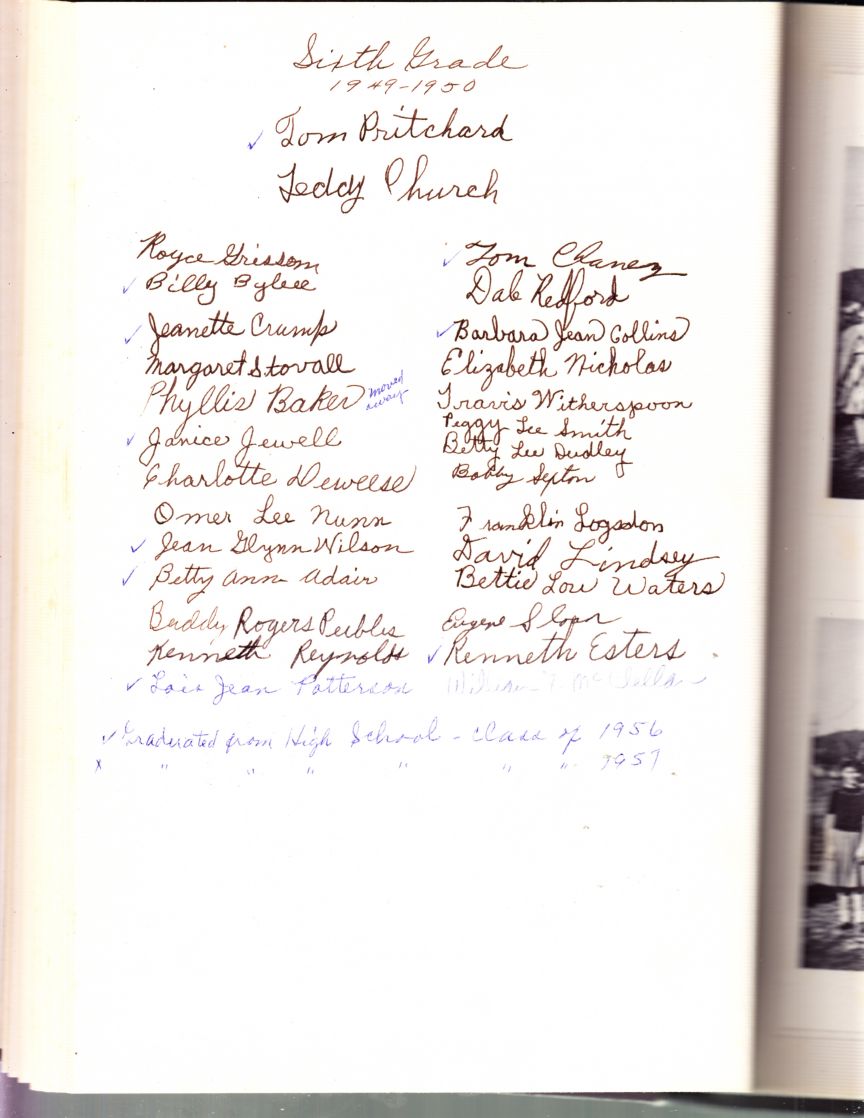 Sixth Grade
1949-1950
✓ Tom Pritchard
Teddy Church
Royce Grissom
✓ Billy Bybee
✓ Jeanette Crump
Margaret Stovall
Phyllis Baker moved away
✓ Janice Jewell
Charlotte Deweese
Omer Lee Nunn
✓ Jean Glynn Wilson
✓ Betty Ann Adair
Buddy Rogers Peebles
Kenneth Reynolds
✓ Lois Jean Patterson
✓ Tom Chaney
Dale Redford
✓ Barbara Jean Collins
Elizabeth Nicholas
Travis Witherspoon
Peggy Lee Smith
Betty Lee Dudley
Bobby Sexton
Franklin Logsdon
David Lindsey
Bettie Lou Waters
Eugene Sloan
✓ Kenneth Esters
William F. McClellan
✓ Graduated from High School - Class of 1956
x " " " " " " 1957